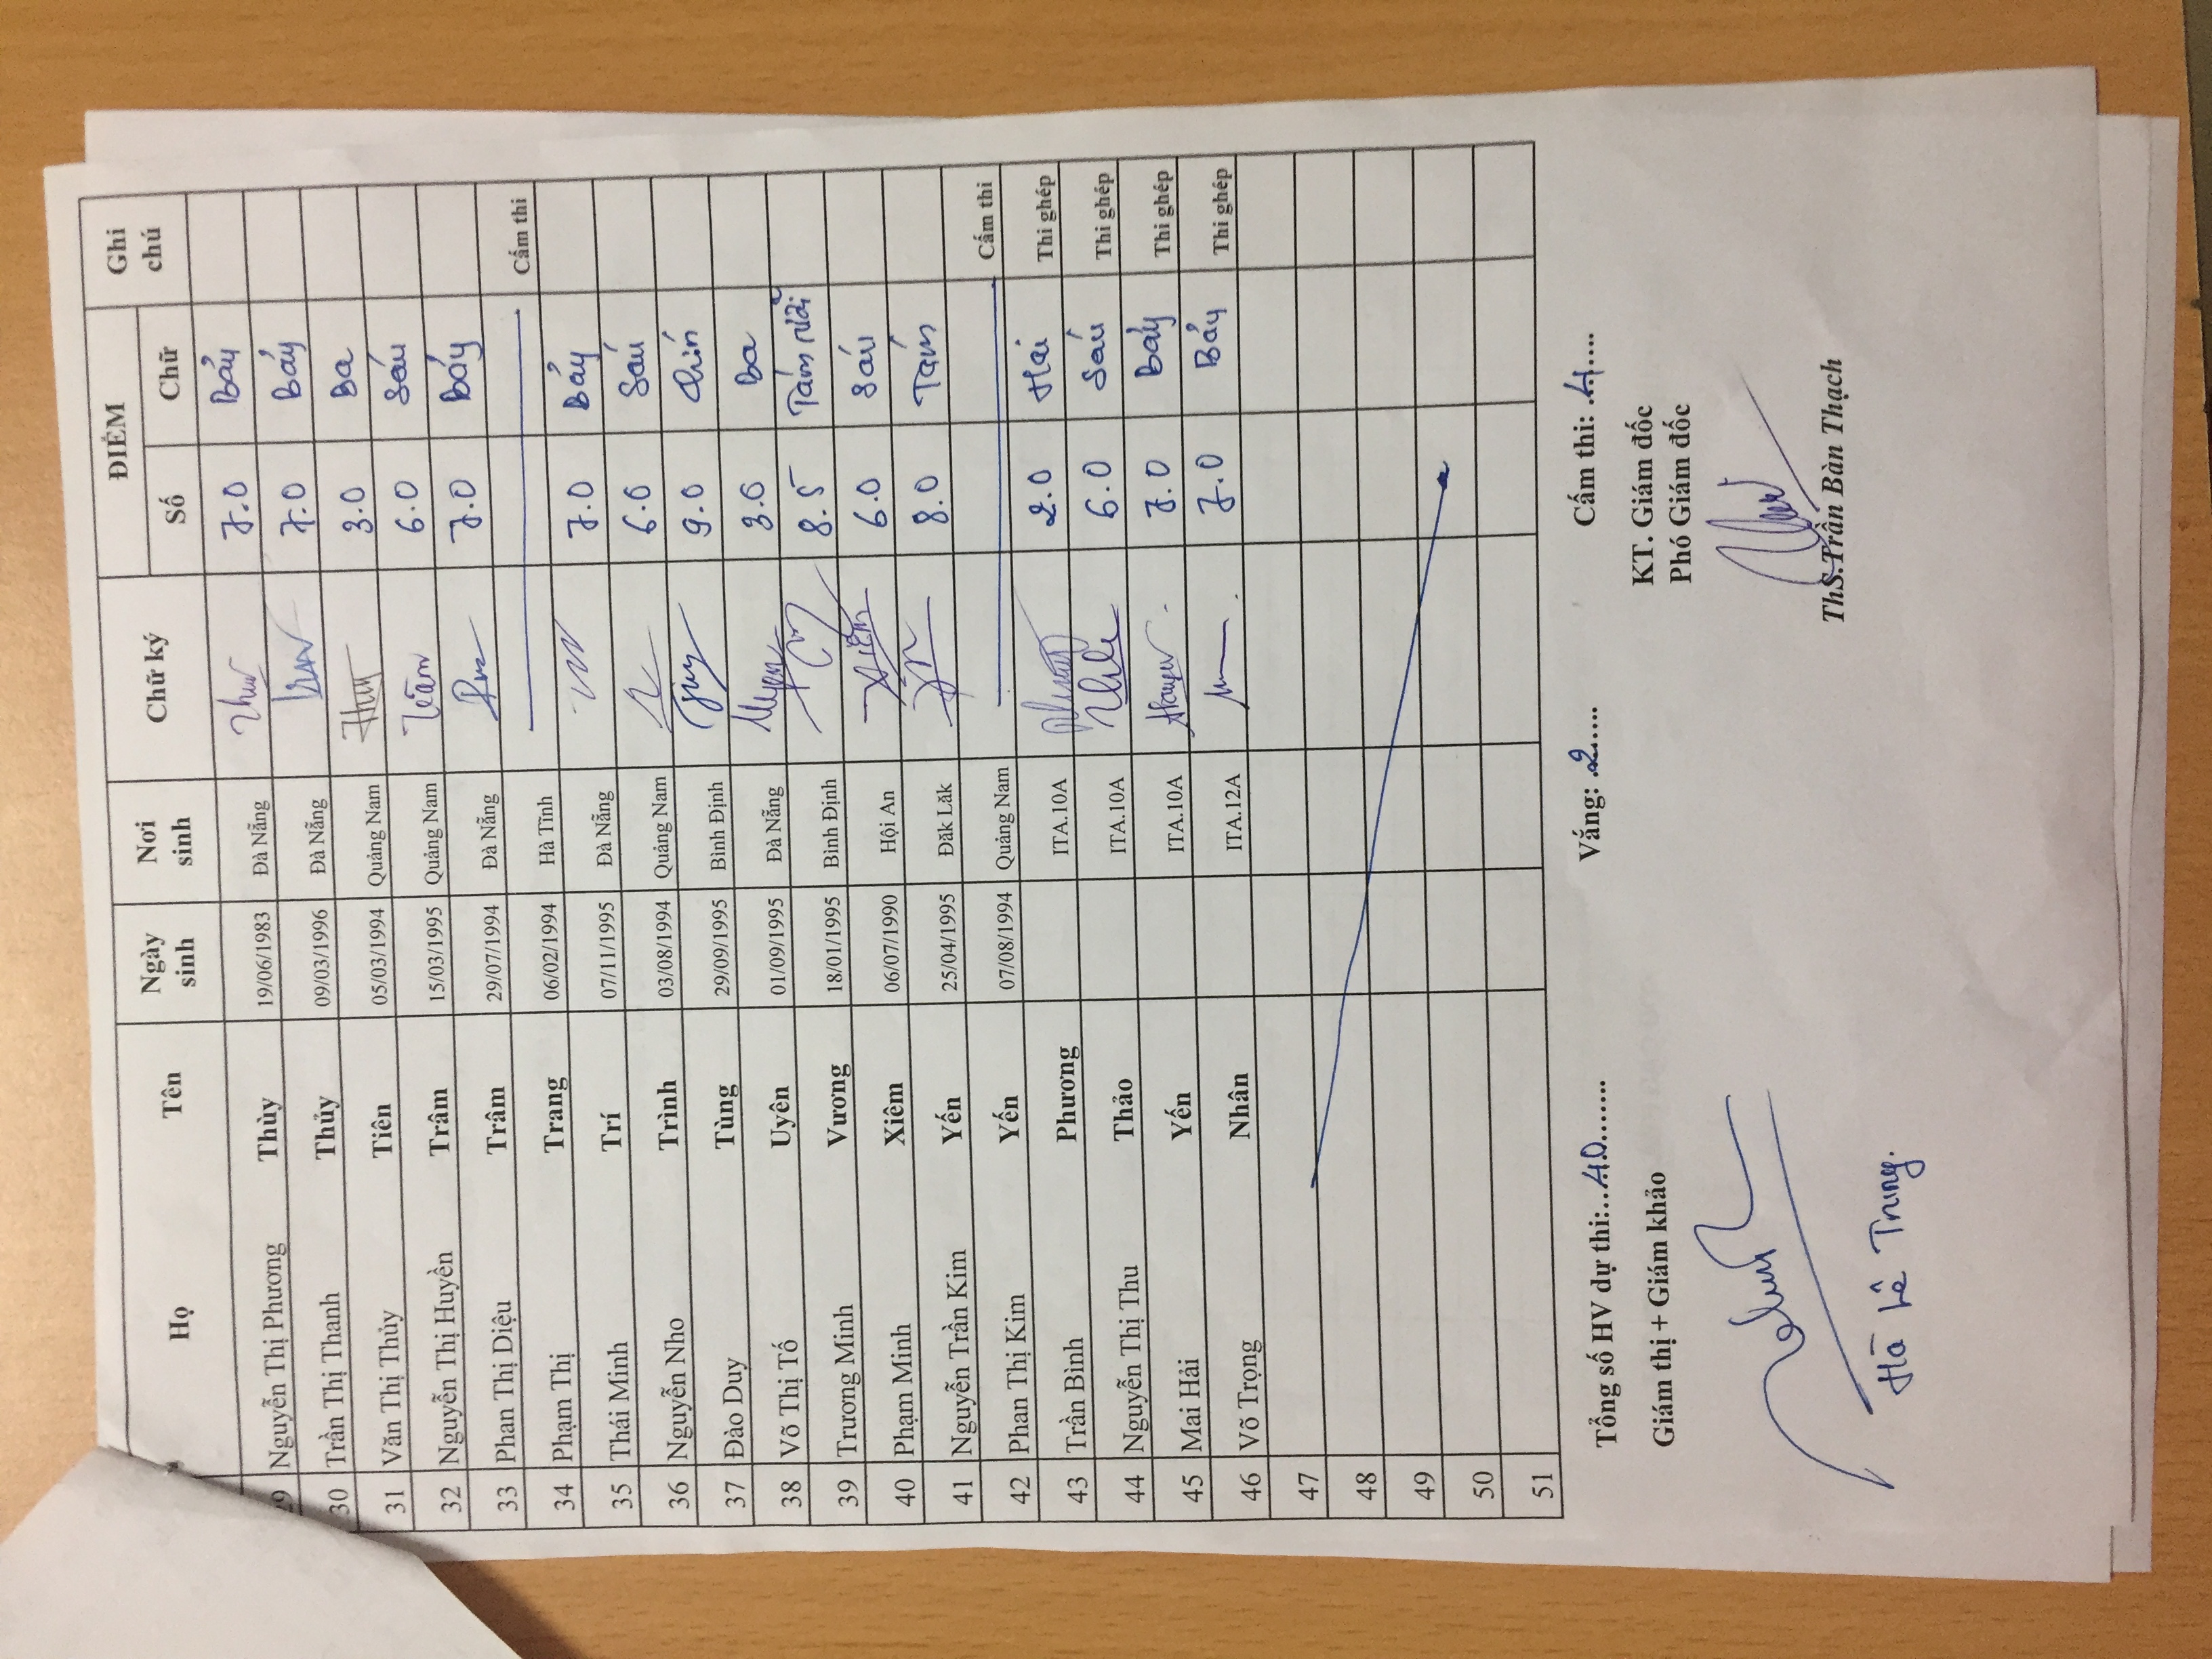 Họ Tên Ngày sinh Nơi sinh Chữ ký ĐIỂM Ghi chú
Số Chữ
29 Nguyễn Thị Phương Thùy 19/06/1983 Đà Nẵng 7.0 Bảy
30 Trần Thị Thanh Thủy 09/03/1996 Đà Nẵng 7.0 Bảy
31 Văn Thị Thủy Tiên 05/03/1994 Quảng Nam 3.0 Ba
32 Nguyễn Thị Huyền Trâm 15/03/1995 Quảng Nam 6.0 Sáu
33 Phan Thị Diệu Trâm 29/07/1994 Đà Nẵng 7.0 Bảy
34 Phạm Thị Trang 06/02/1994 Hà Tĩnh Cấm thi
35 Thái Minh Trí 07/11/1995 Đà Nẵng 7.0 Bảy
36 Nguyễn Nho Trình 03/08/1994 Quảng Nam 6.0 Sáu
37 Đào Duy Tùng 29/09/1995 Bình Định 9.0 Chín
38 Võ Thị Tố Uyên 01/09/1995 Đà Nẵng 3.0 Ba
39 Trương Minh Vương 18/01/1995 Bình Định 8.5 Tám rưỡi
40 Phạm Minh Xiêm 06/07/1990 Hội An 6.0 Sáu
41 Nguyễn Trần Kim Yến 25/04/1995 Đăk Lăk 8.0 Tám
42 Phan Thị Kim Yến 07/08/1994 Quảng Nam Cấm thi
43 Trần Bình Phương ITA.10A 2.0 Hai Thi ghép
44 Nguyễn Thị Thu Thảo ITA.10A 6.0 Sáu Thi ghép
45 Mai Hải Yến ITA.10A 7.0 Bảy Thi ghép
46 Võ Trọng Nhân ITA.12A 7.0 Bảy Thi ghép
47
48
49
50
51
Tổng số HV dự thi:...40........ Vắng: .2..... Cấm thi: .4....
Giám thị + Giám khảo KT. Giám đốc
Phó Giám đốc
Hà Lê Trung. ThS.Trần Bàn Thạch